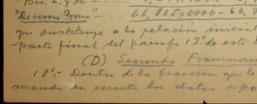 "Decima Zona" 66,865.0000 - 66,9
que sustituye a la relación inicial
parte final del párrafo 12º de este
(D) Segunda Fracciona
18º.- Dentro de la fracción que le
mando en cuenta los datos apo